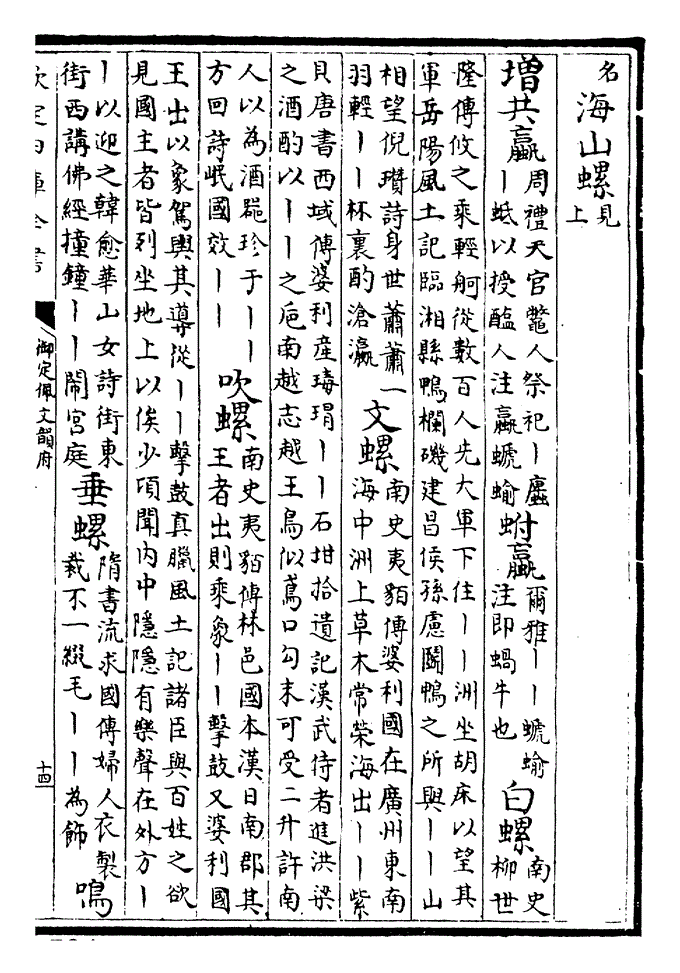 名 海山螺 見上
增共蠃 周禮天官鼈人祭祀丨蠯丨蚳以授醢人注蠃螔蝓 蚹蠃 爾雅丨丨螔蝓注即蝸牛也 白螺 南史柳世
隆傳攸之乘輕舸從數百人先大軍下住丨丨洲坐胡床以望其
軍岳陽風土記臨湘縣鴨欄磯建昌侯孫慮鬬鴨之所與丨丨山
相望倪瓚詩身世蕭蕭一羽輕丨丨杯裏酌滄瀛 文螺 南史夷貊傳婆利國在廣州東南海中洲上草木常榮海出丨丨紫
貝唐書西域傳婆利産瑇瑁丨丨石坩拾遺記漢武侍者進洪梁
之酒酌以丨丨之巵南越志越王鳥似鳶口勾末可受二升許南
人以為酒器珍于丨丨方回詩岷國效丨丨 吹螺 南史夷貊傳林邑國本漢日南郡其王者出則乘象丨丨擊鼓又婆利國
王出以象駕輿其導從丨丨擊鼓真臘風土記諸臣與百姓之欲
見國主者皆列坐地上以俟少頃聞内中隱隱有樂聲在外方丨
丨以迎之韓愈華山女詩街東街西講佛經撞鐘丨丨鬧宮庭 垂螺 隋書流求國傳婦人衣製裁不一綴毛丨丨為飾 鳴
欽定四庫全書
御定佩文韻府
十四